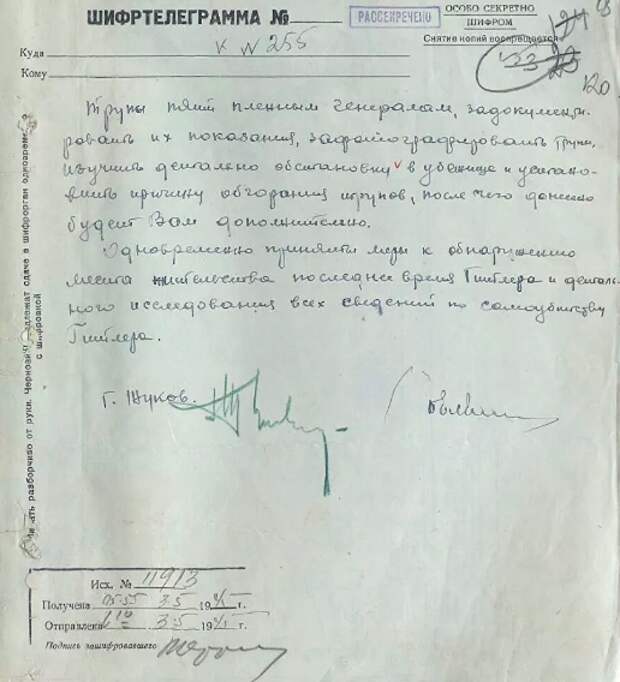 ШИФРТЕЛЕГРАММА №
РАССЕКРЕЧЕНО
ОСОБО СЕКРЕТНО
ШИФРОМ
Снятие копий воспрещается
Куда К № 255
Кому
120
Трупы пленным генералам, задокументи-
ровать их показания, зафотографировать трупы,
изучить детально обстановку в убежище и устано-
вить причину обгорания трупов, после чего донесено
будет Вам дополнительно.
Одновременно приняты меры к обнаружению
места жительства последнее время Гитлера и деталь-
ного исследования всех сведений по самоубийству
Гитлера.
Г. Жуков.
разборчиво от руки. Черновик подлежит сдаче в шифрорган одновременно
с шифровкой
Исх. № 11913
Получена 05-55 3.5 1945 г.
Отправлена 3.5 1945 г.
Подпись зашифровавшего